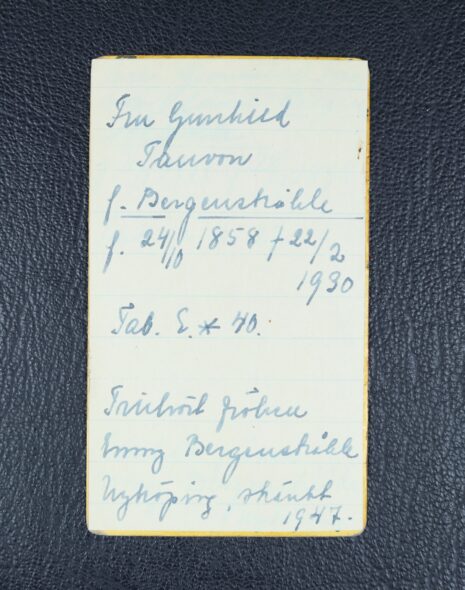 Fru Gunhild
Tauvon
f. Bergenstråhle
f. 24/10 1858 † 22/2
1930
Tab. E. * 40.
Friherrl fröken
Emmy Bergenstråhle
Nyköping, skänkt
1947.